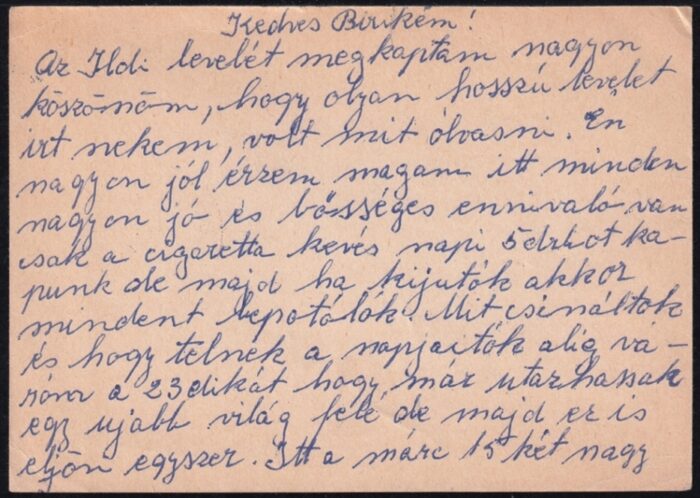 Kedves Birikém!
Az Ildi levelét megkaptam nagyon
köszönöm, hogy olyan hosszú levelet
irt nekem, volt mit ólvasni. Én
nagyon jól érzem magam itt minden
nagyon jó és bősséges ennivaló van
csak a cigaretta kevés napi 5 drbot ka-
punk de majd ha kijutók akkor
mindent bepotólók. Mit csináltok
és hogy telnek a napjaitók alig vá-
róm a 23 dikát hogy már utazhassak
egy ujabb világ felé de majd ez is
eljön egyszer. Itt a márc 15 két nagy